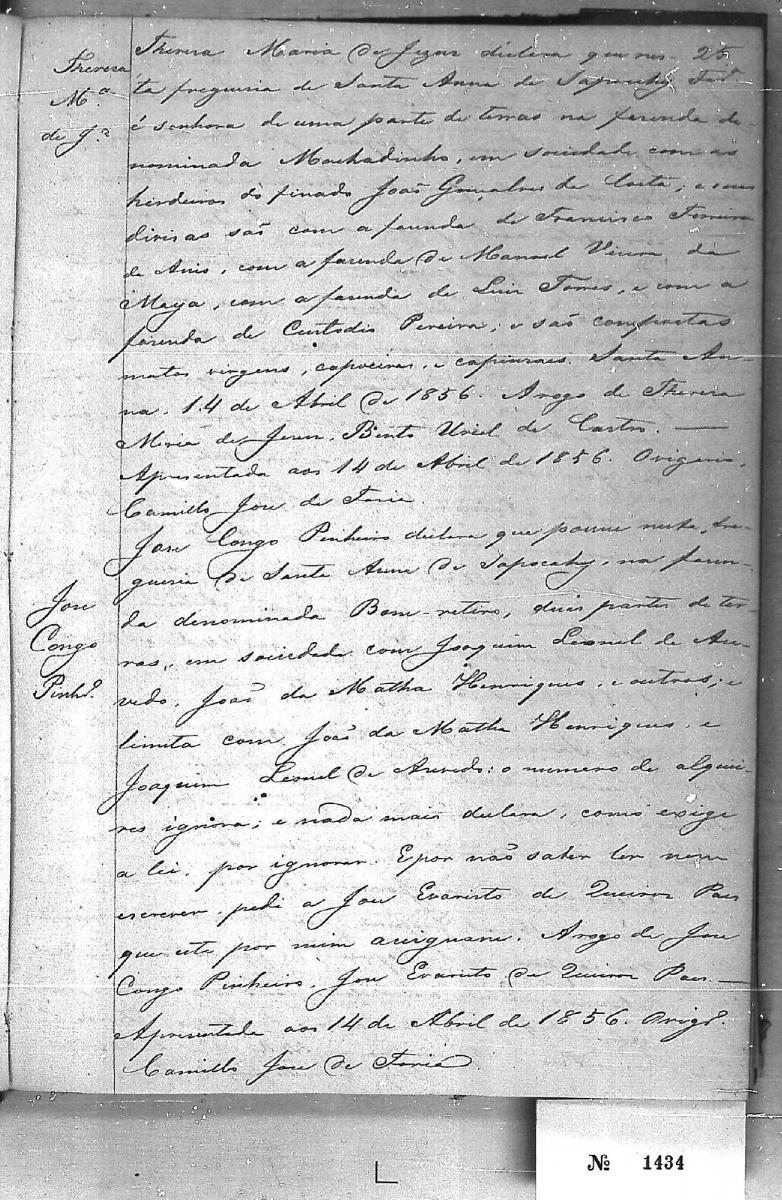 Thereza
M.ª
de J.s
Thereza Maria de Jezus declara que nes- 25
ta freguesia de Santa Anna de Sapucahy
é senhora de uma parte de terras na fazenda de-
nominada Machadinho, em sociedade com as
herdeiros do finado João Gonçalves da Costa; e suas
divisas são com a fazenda de Francisco Ferreira
de Assis, com a fazenda de Manoel Vieira da
Maya, com a fazenda de Luiz Torres, e com a
fazenda de Custodio Pereira; e são compostas
matos virgens, capoeiras, e capinzaes. Santa An-
na. 14 de Abril de 1856. Arogo de Thereza
Maria de Jezus. Bento Uriel de Castro. —
Apresentada aos 14 de Abril de 1856. Ovigario,
Camillo Jose de Faria.
Jose
Congo
Pinhr.º
Jose Congo Pinheiro declara que possue nesta fre-
guesia de Santa Anna de Sapocahy, na fazen-
da denominada Bom-retiro, duas partes de ter-
ras, em sociedade com Joaquim Leonel de Aze-
vedo, João da Matha Henriques, e outros; e
limita com João da Matha Henriques, e
Joaquim Leonel de Azevedo: o numero de alquei-
res ignora; e nada mais declara, como exige
a lei, por ignorar. Epor não saber ler nem
escrever, pedi a Jose Evaristo de Queiros Paes
que este por mim assignasse. Arogo de Jose
Congo Pinheiro, Jose Evaristo de Queiros Paes. —
Apresentada aos 14 de Abril de 1856. Ovigr.º
Camillo Jose de Faria.
№ 1434